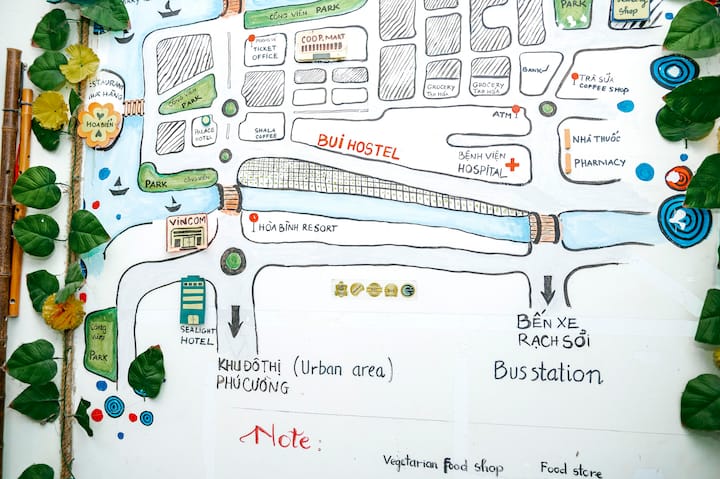 CÔNG VIÊN PARK
PARK
Shop
TICKET
OFFICE
COOP.MART
BANK
TRÀ SỮA
COFFEE SHOP
GROCERY
TẠP HÓA
GROCERY
TẠP HÓA
CÔNG VIÊN
PARK
HOA BIỂN
PALACE
HOTEL
SHALA
COFFEE
ATM
BUI HOSTEL
BỆNH VIỆN
HOSPITAL
NHÀ THUỐC
PHARMACY
PARK CÔNG VIÊN
VINCOM
HÒA BÌNH RESORT
SEALIGHT
HOTEL
CÔNG
VIÊN
PARK
KHU ĐÔ THỊ (Urban area)
PHÚ CƯỜNG
BẾN XE
RẠCH SỎI
Bus station
Note:
Vegetarian Food shop
Food store